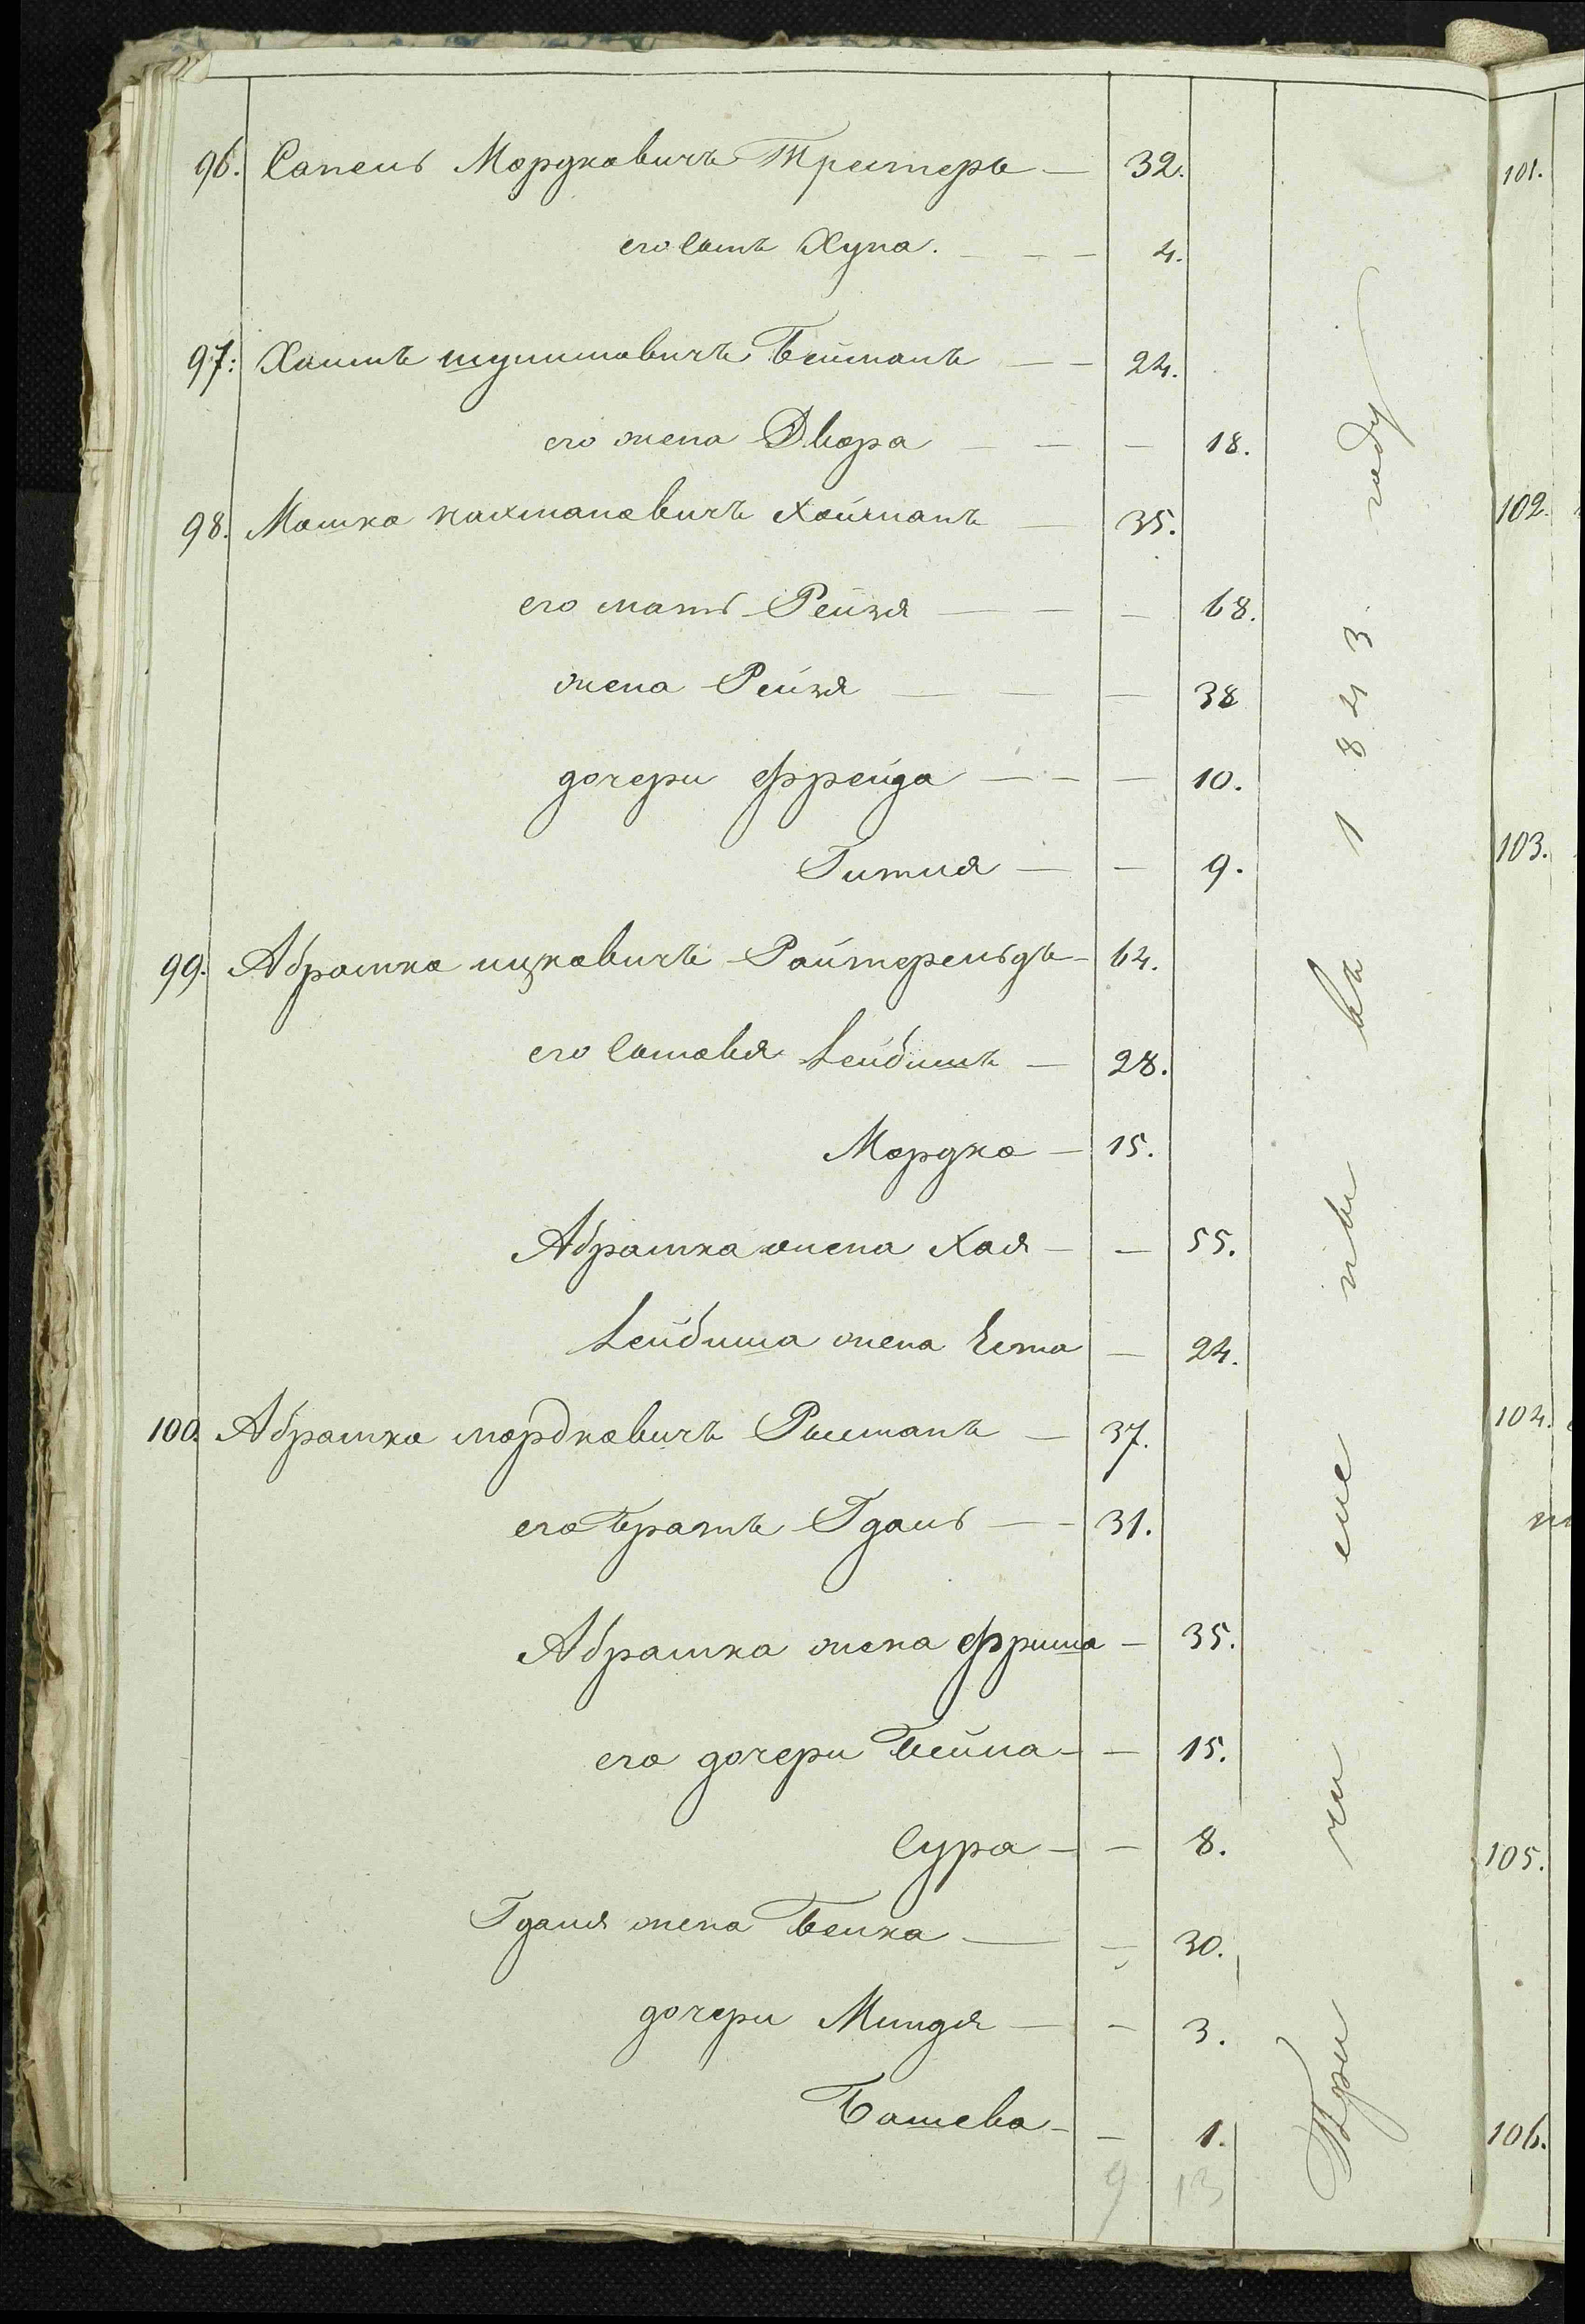 96. Сапель Мордковичъ Трестеръ — 32.
его сынъ Хуна. — — — 4.
97. Хаимъ шулимовичъ Бейманъ — — 24.
его жена Двора — — — 18.
98. Мошко нахмановичъ Хойнманъ — 35.
его мать Рейзя — — — 68.
жена Рейзя — — — 38
дочери Фрейда — — — 10.
Гитля — — 9.
99. Абрамко ицковичъ Раутерельдъ — 64.
его сыновья Лейбишъ — 28.
Мордко — 15.
Абрамка жена Хая — — 55.
Лейбиша жена Еста — 24.
100. Абрамко мордковичъ Рыстанъ — 37.
его братъ Гдаль — — 31.
Абрамка жена Фриша — 35.
его дочери Бейла — — 15.
Сура — — 8.
Гдаля жена Бенка — — 30.
дочери Миндя — — 3.
Башева — — 1.
9 13
При чи сле ны въ 1843. году
101.
102.
103.
104.
105.
106.